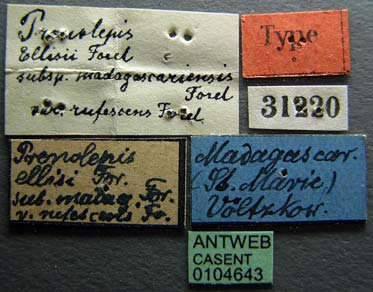 Prenolepis
Ellisii Forel
subsp. madagascariensis
Forel
var. rufescens Forel.
Type
31220
Prenolepis
ellisi For.
sub. madag. For.
v. rufescens Fo.
Madagascar.
(St. Marie)
Völtzkow.
ANTWEB
CASENT
0104643